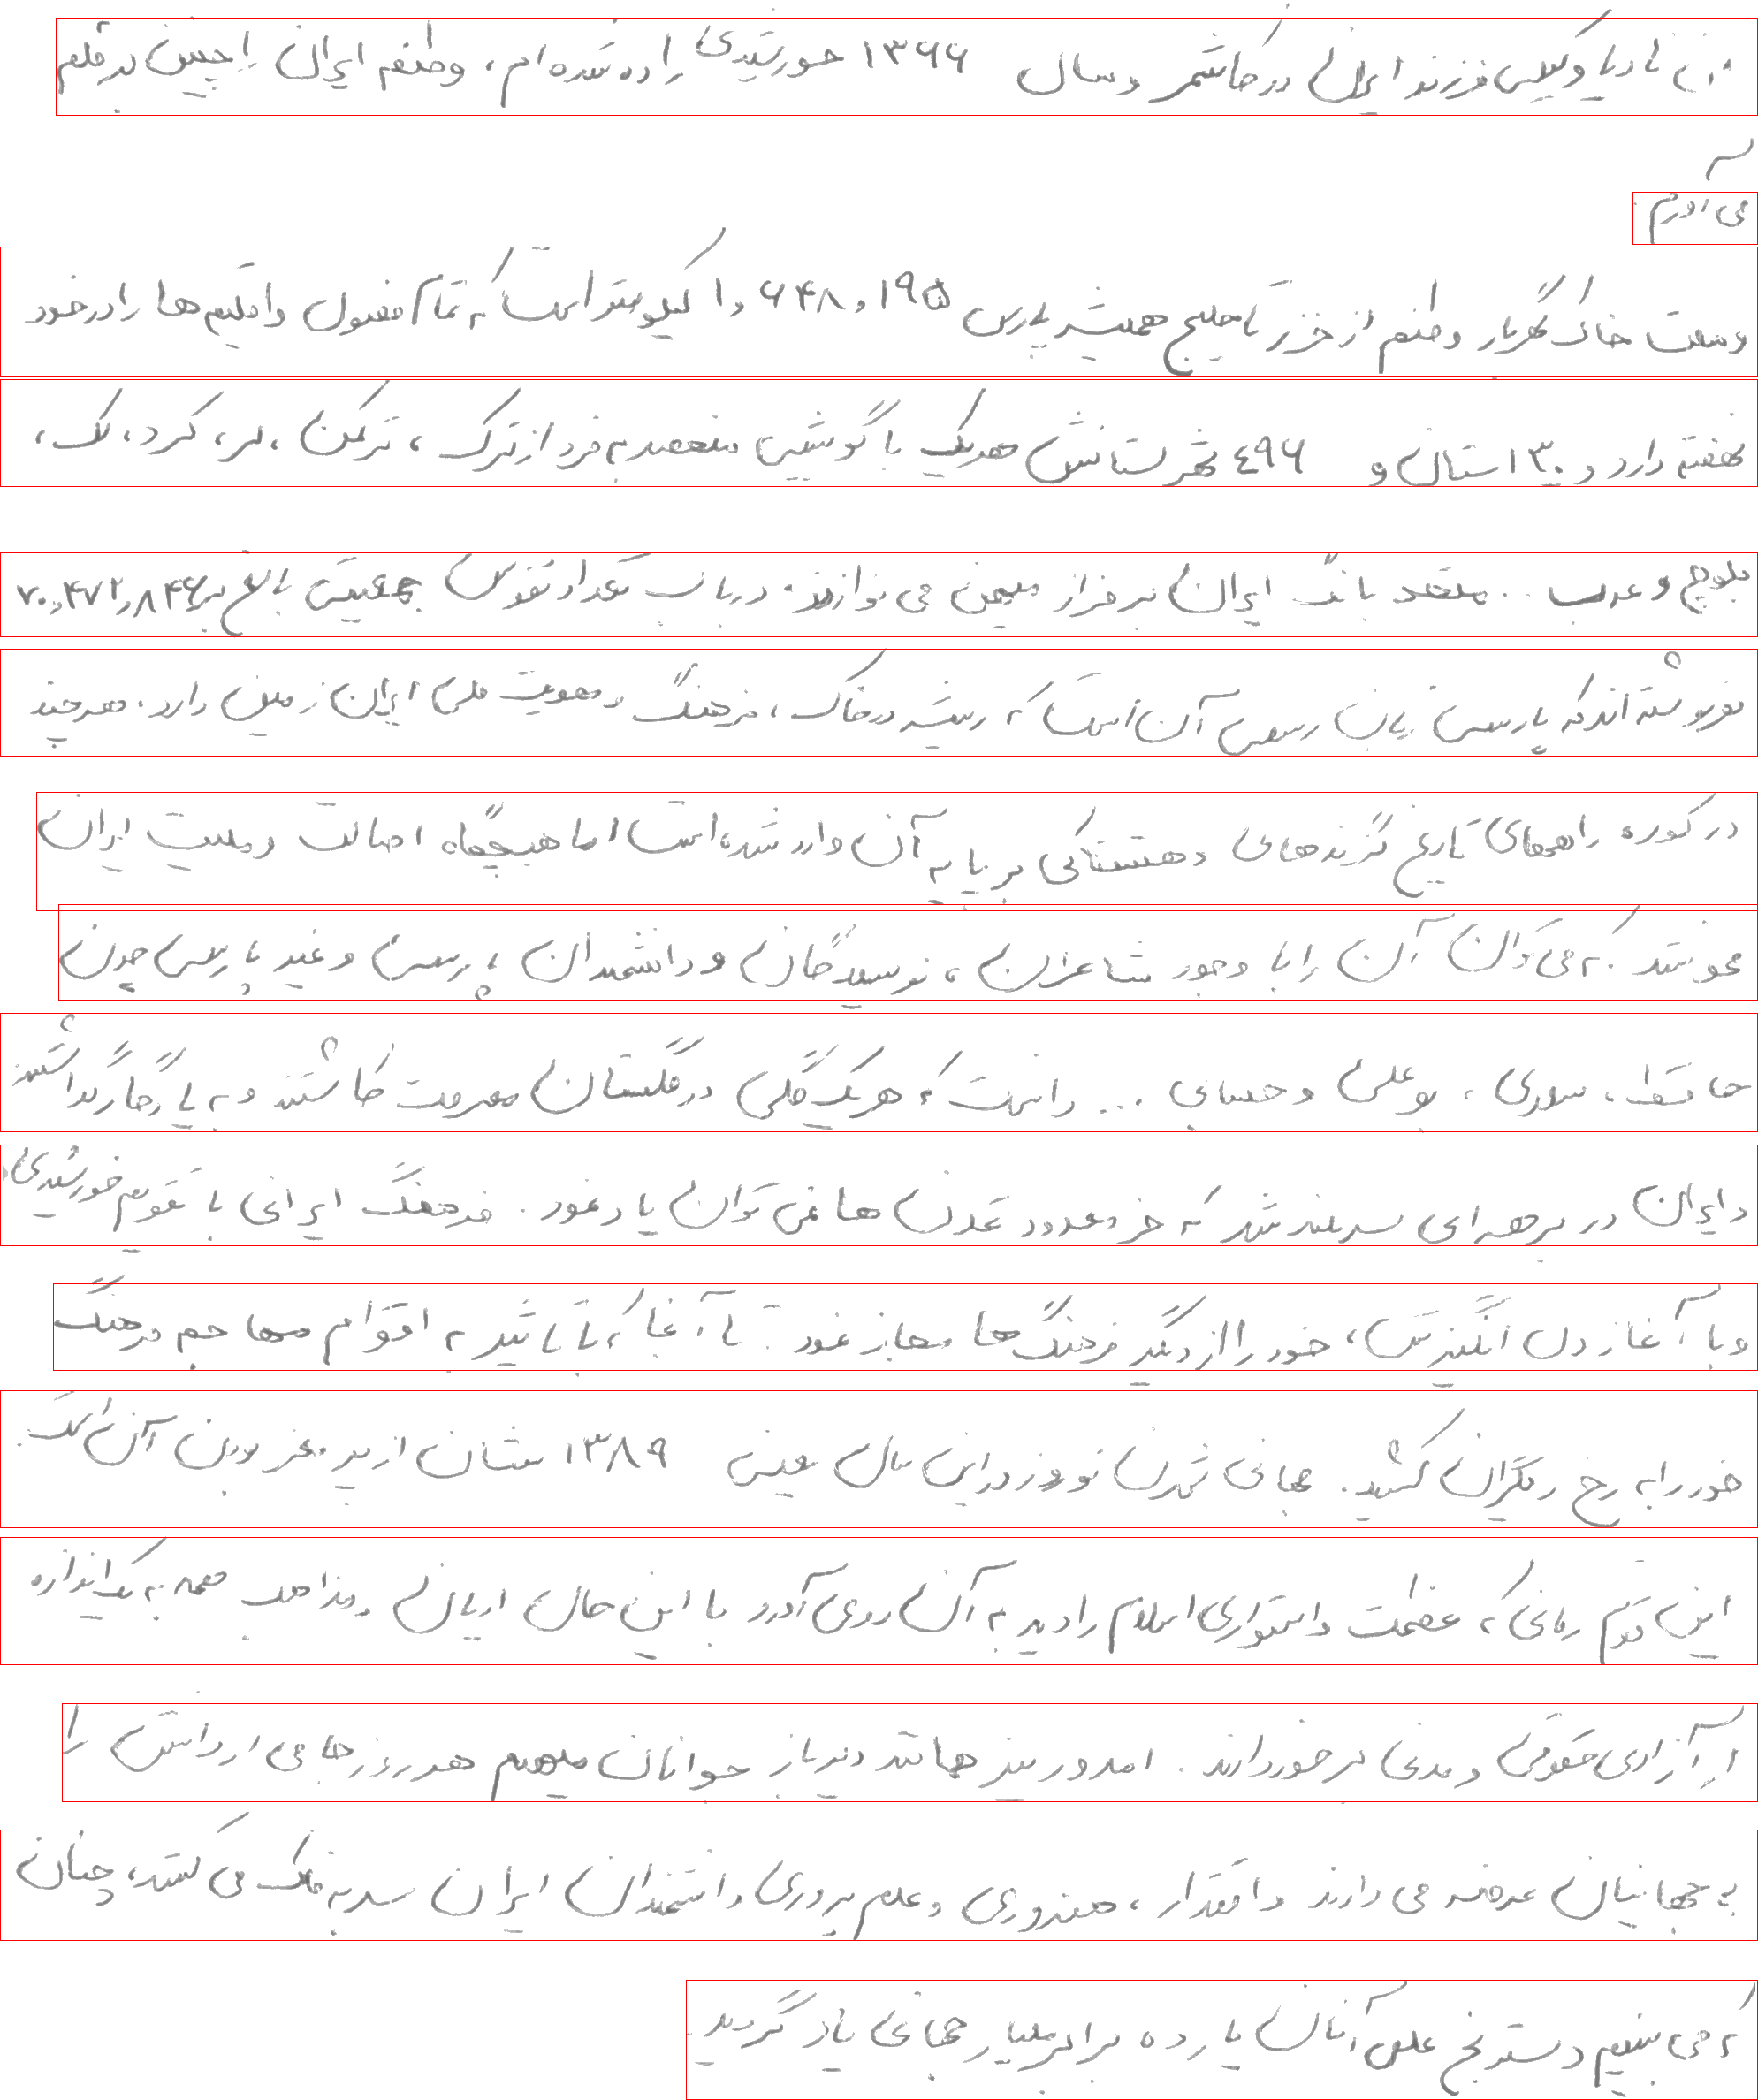 من نادیا وکیلی فرزند ایران در کاشمر و سال ۱۳۶۶ خورشیدی زاده شده ام، وطنم ایران را چنین بر قلم
می آورم.
وسعت خاک گهربار وطنم از خزر تا خلیج همیشه پارس ۱,۶۴۸,۱۹۵ کیلومتر است که تمام فصول و اقلیم ها را در خود
نهفته دارد و ۳۰ استان و ٤٩۶ شهرستانش هر یک با گویشی منحصر به فرد از ترک، ترکمن، لر، کرد، لک،
بلوچ و عرب .. متحد بانگ ایران بر فراز میهن می نوازند. در باب تعداد نفوس جمعیتش بالغ بر ۷۰,۴۷۲,۸۴۶
نفر نوشته اند که پارسی زبان رسمی آن است که ریشه در خاک، فرهنگ و هویت ملی ایران زمین دارد. هر چند
در کوره راههای تاریخ گزندهای دهشتناکی بر پایه آن وارد شده است اما هیچگاه اصالت و ملیت ایران
محو نشد. که می توان آن را با وجود شاعران، نویسندگان و دانشمندان پارسی و غیر پارسی چون
حافظ، سعدی، بوعلی و حسابی ... دانست که هر یک گلی در گلستان معرفت کاشتند و به یادگار گذاشتند
و ایران در برهه ای سربلند شد که جز معدود تمدن ها نمی توان یاد نمود. فرهنگ ایرانی با تقویم خورشیدی
و با آغاز دل انگیزش، خود را از دیگر فرهنگ ها مجاز نمود. تا آنجا که با تاثیر به اقوام مهاجم فرهنگ
خود را به رخ دیگران کشید. جهانی شدن نوروز در این سال یعنی ۱۳۸۹ نشان از پر مغز بودن آن است.
این قوم زمانی که عظمت و استواری اسلام را دید به آن روی آورد با این حال ادیان و مذاهب همه به یک اندازه
از آزادی حقوقی و مدنی برخوردارند. امروز نیز همانند دیرباز جوانان میهنم هر روز جامی از دانش را
به جهانیان عرضه می دارند و اقتدار، هنروری و علم پروری دانشمندان ایران سر به فلک می کشد، چنان
که می بینیم دسترنج علمی آنان یازده برابر معیار جهانی یاد گردید.